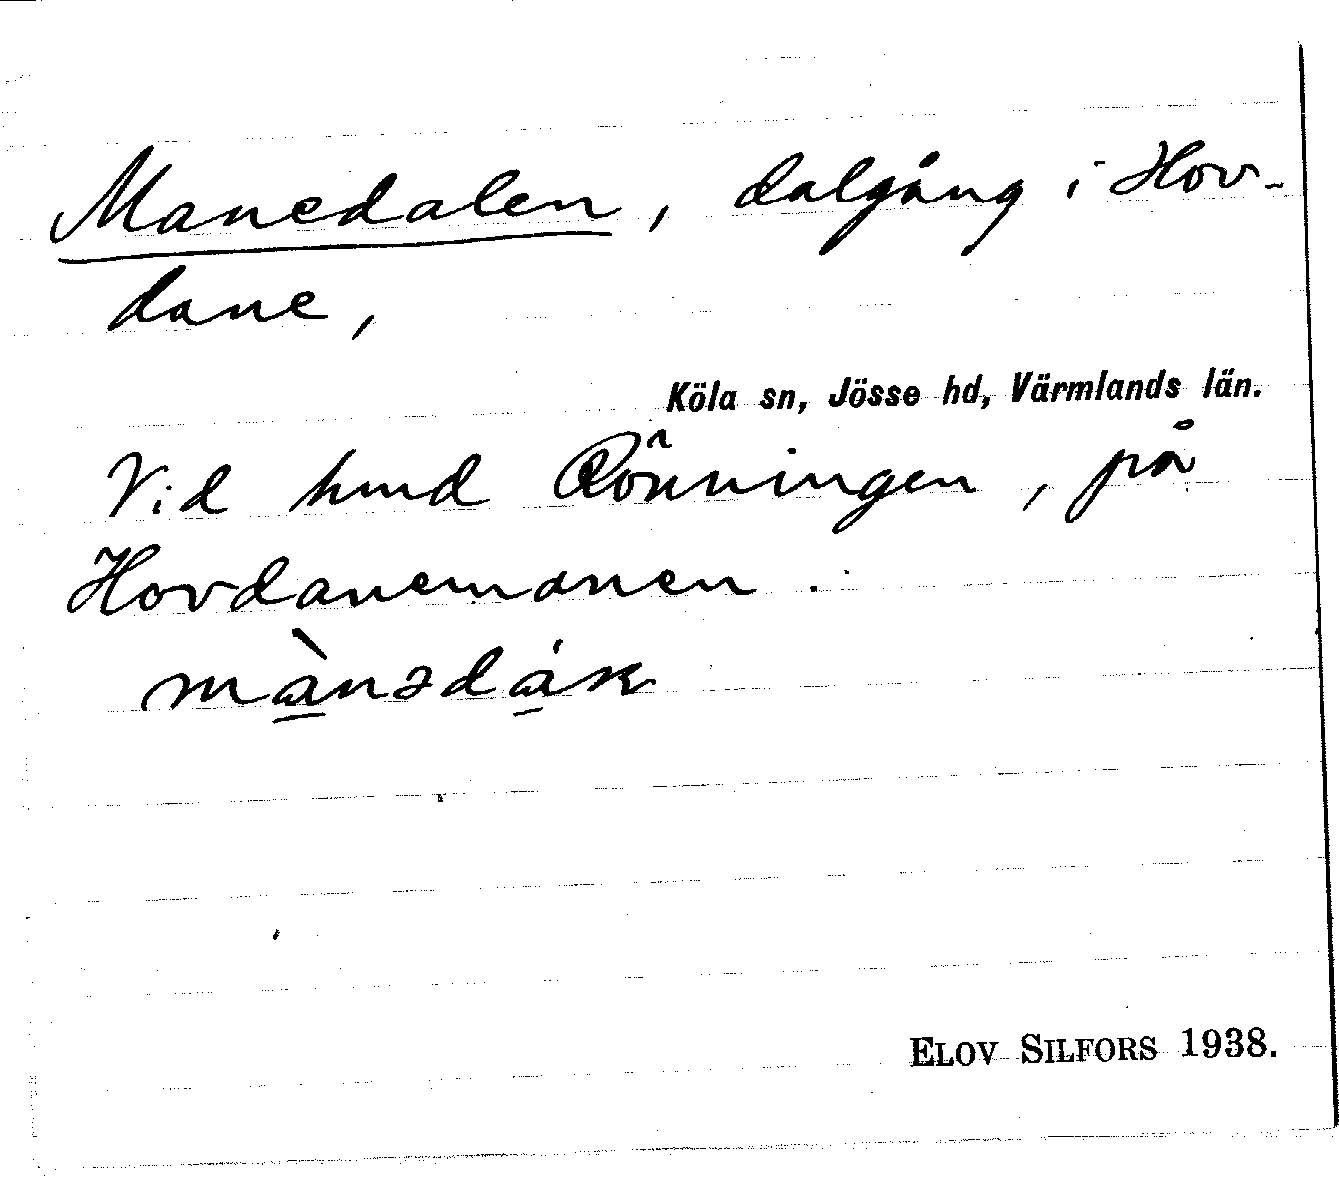 Manedalen, dalgång i Hov-
dane,
Köla sn, Jösse hd, Värmlands län.
Vid hmd Rönningen, på
Hovdanemanen.
mànədáɴ
ELOV SILFORS 1938.